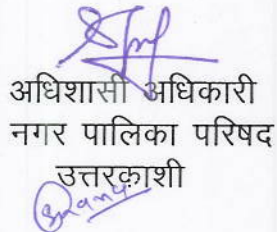 अधिशासी अधिकारी
नगर पालिका परिषद
उत्तरकाशी